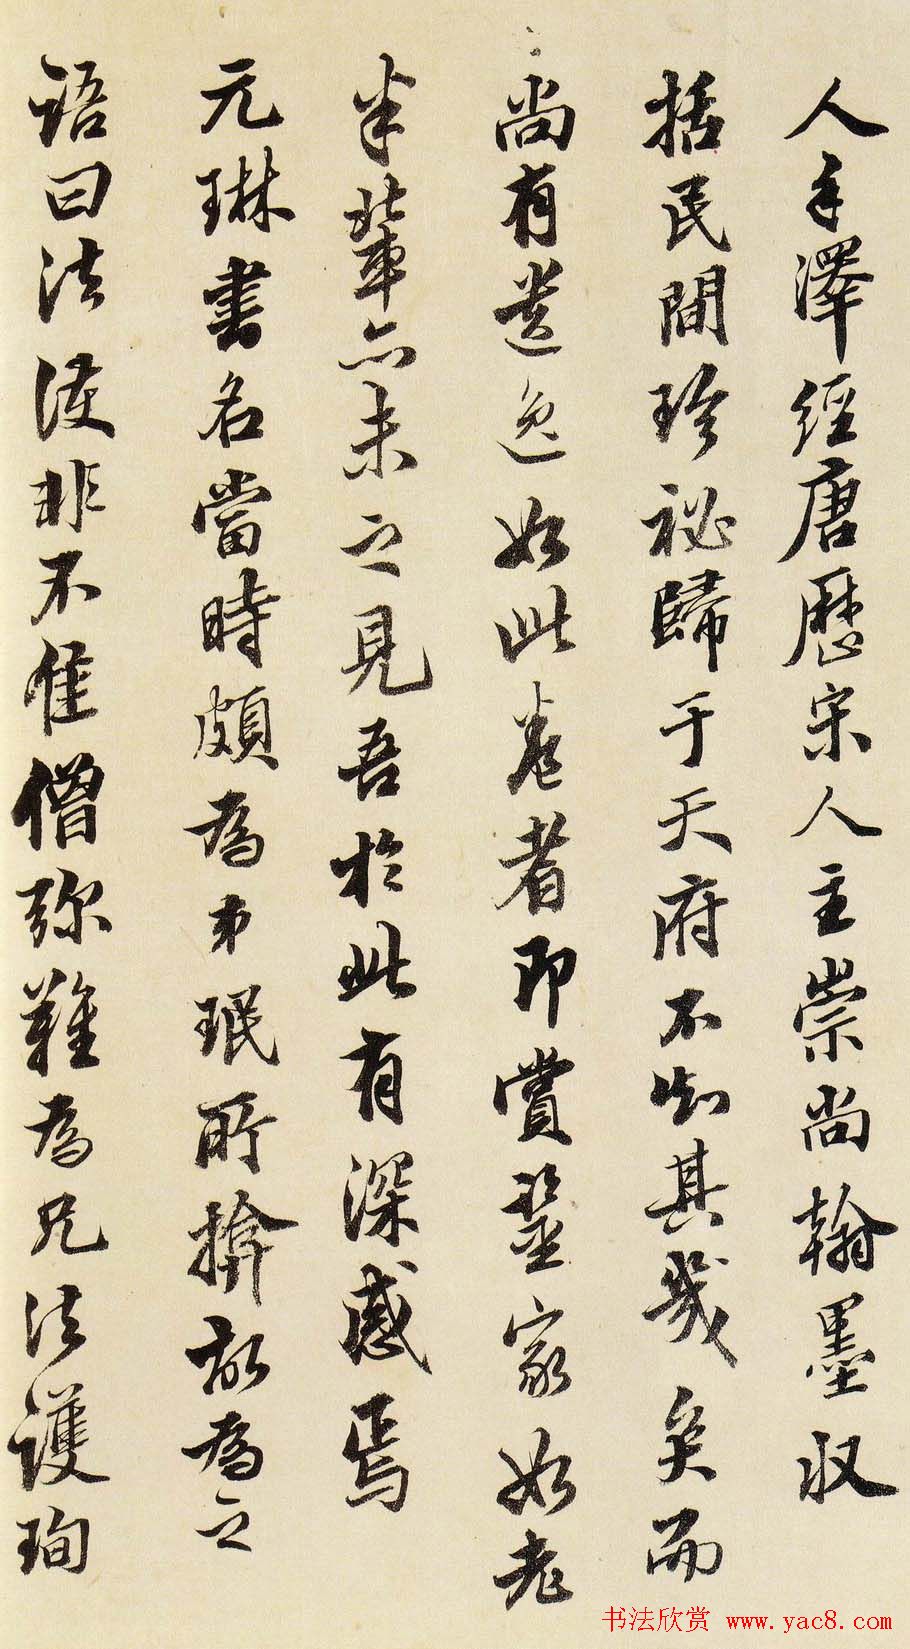 人手澤經唐歷宋人主崇尚翰墨収
括民間珍祕歸于天府不知其幾矣而
尚有遺逸如此卷者即賞鑒家如老
米輩亦未之見吾於此有深感焉
元琳書名當時頗為弟珉所揜故為之
語曰法護非不佳僧弥難為兄法護珣
书法欣赏 www.yac8.com